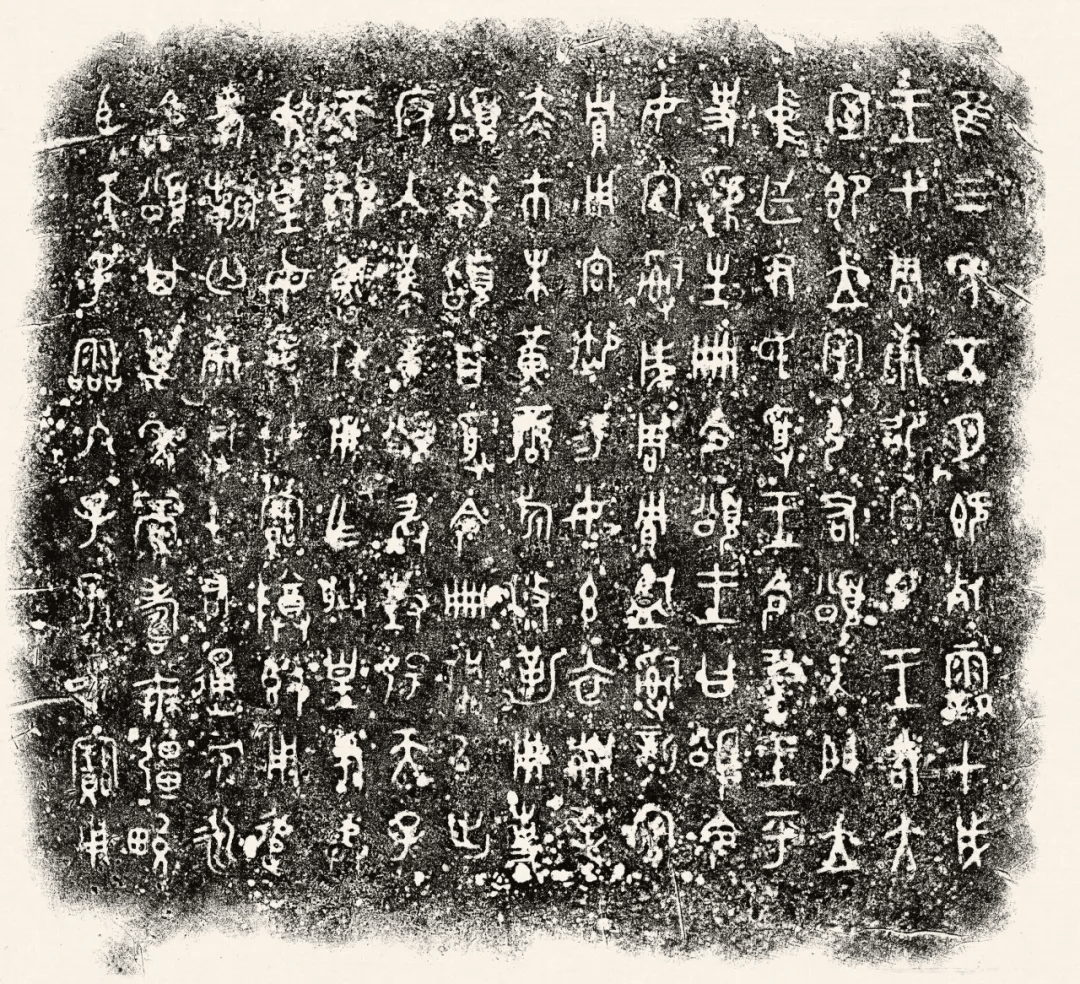 隹三年五月既死霸甲戌
王才周康卲宮旦王各大
室即立宰引右頌入門立
中廷尹氏受王令書王乎
史虢生冊令頌王曰頌令
女官𤔲成周貯監𤔲新造
貯用宮御易女玄衣黹屯
赤巿朱黃䜌旂攸勒用事
頌拜𩒨首受令冊佩以出
反入堇章頌敢對揚天子
不顯魯休用乍朕皇考龏
叔皇母龏始寶尊𣪘用追
孝祈匄康𩛥屯右通彔永
令頌其萬年眉壽無疆畯
臣天子霝冬子=孫=永寶用